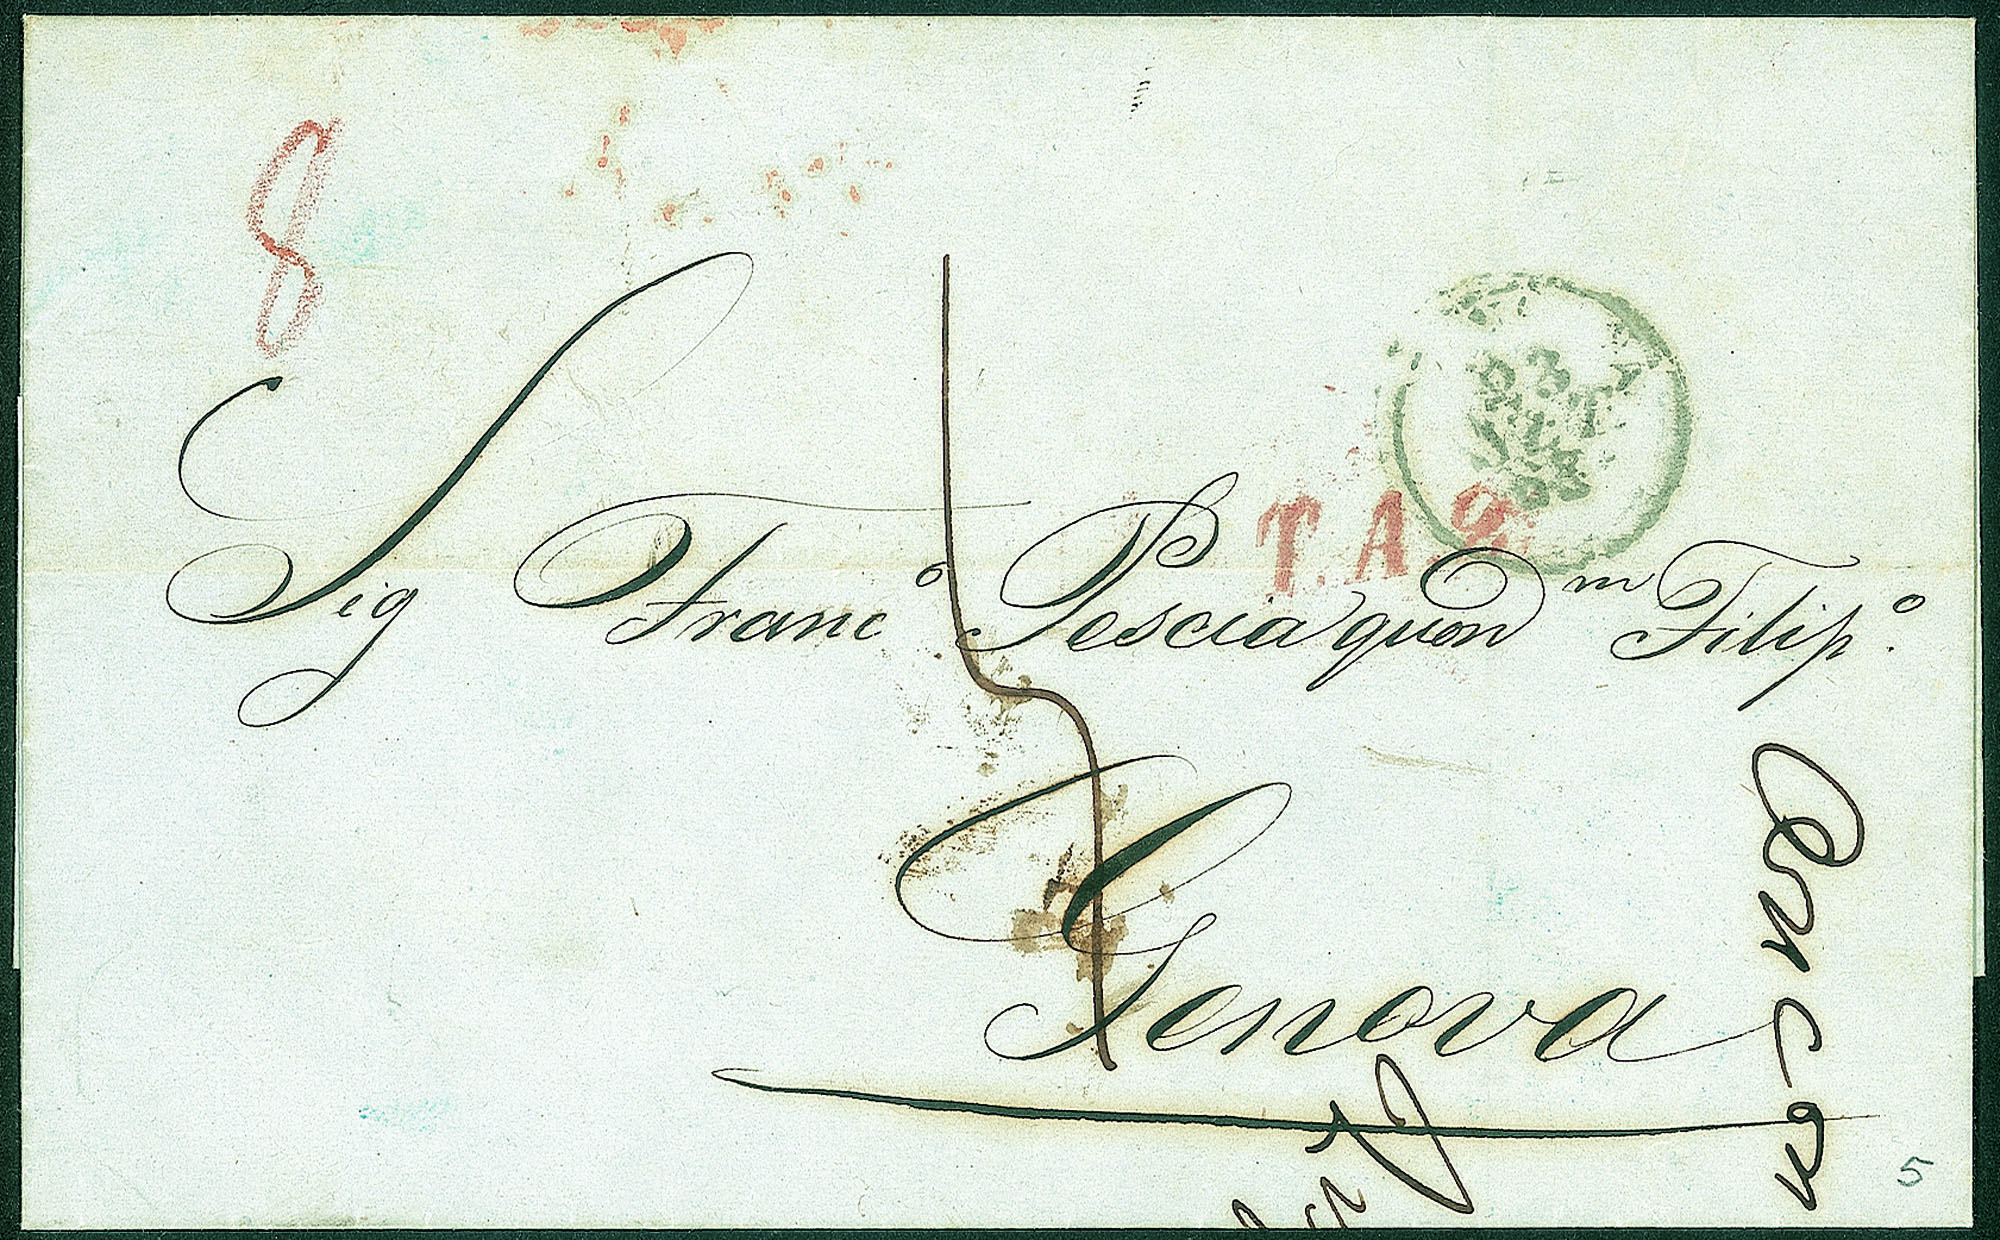 8
Sig Franc.º Pescia quon.ᵐ Filip.º
T.A.
Genova
5